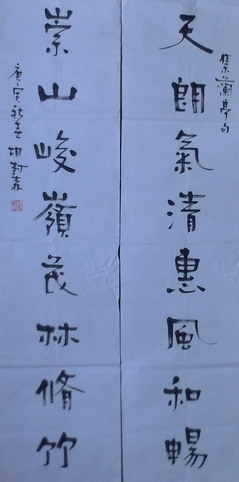 集蘭亭句
天朗氣清惠風和暢
崇山峻嶺茂林脩竹
庚寅秋月